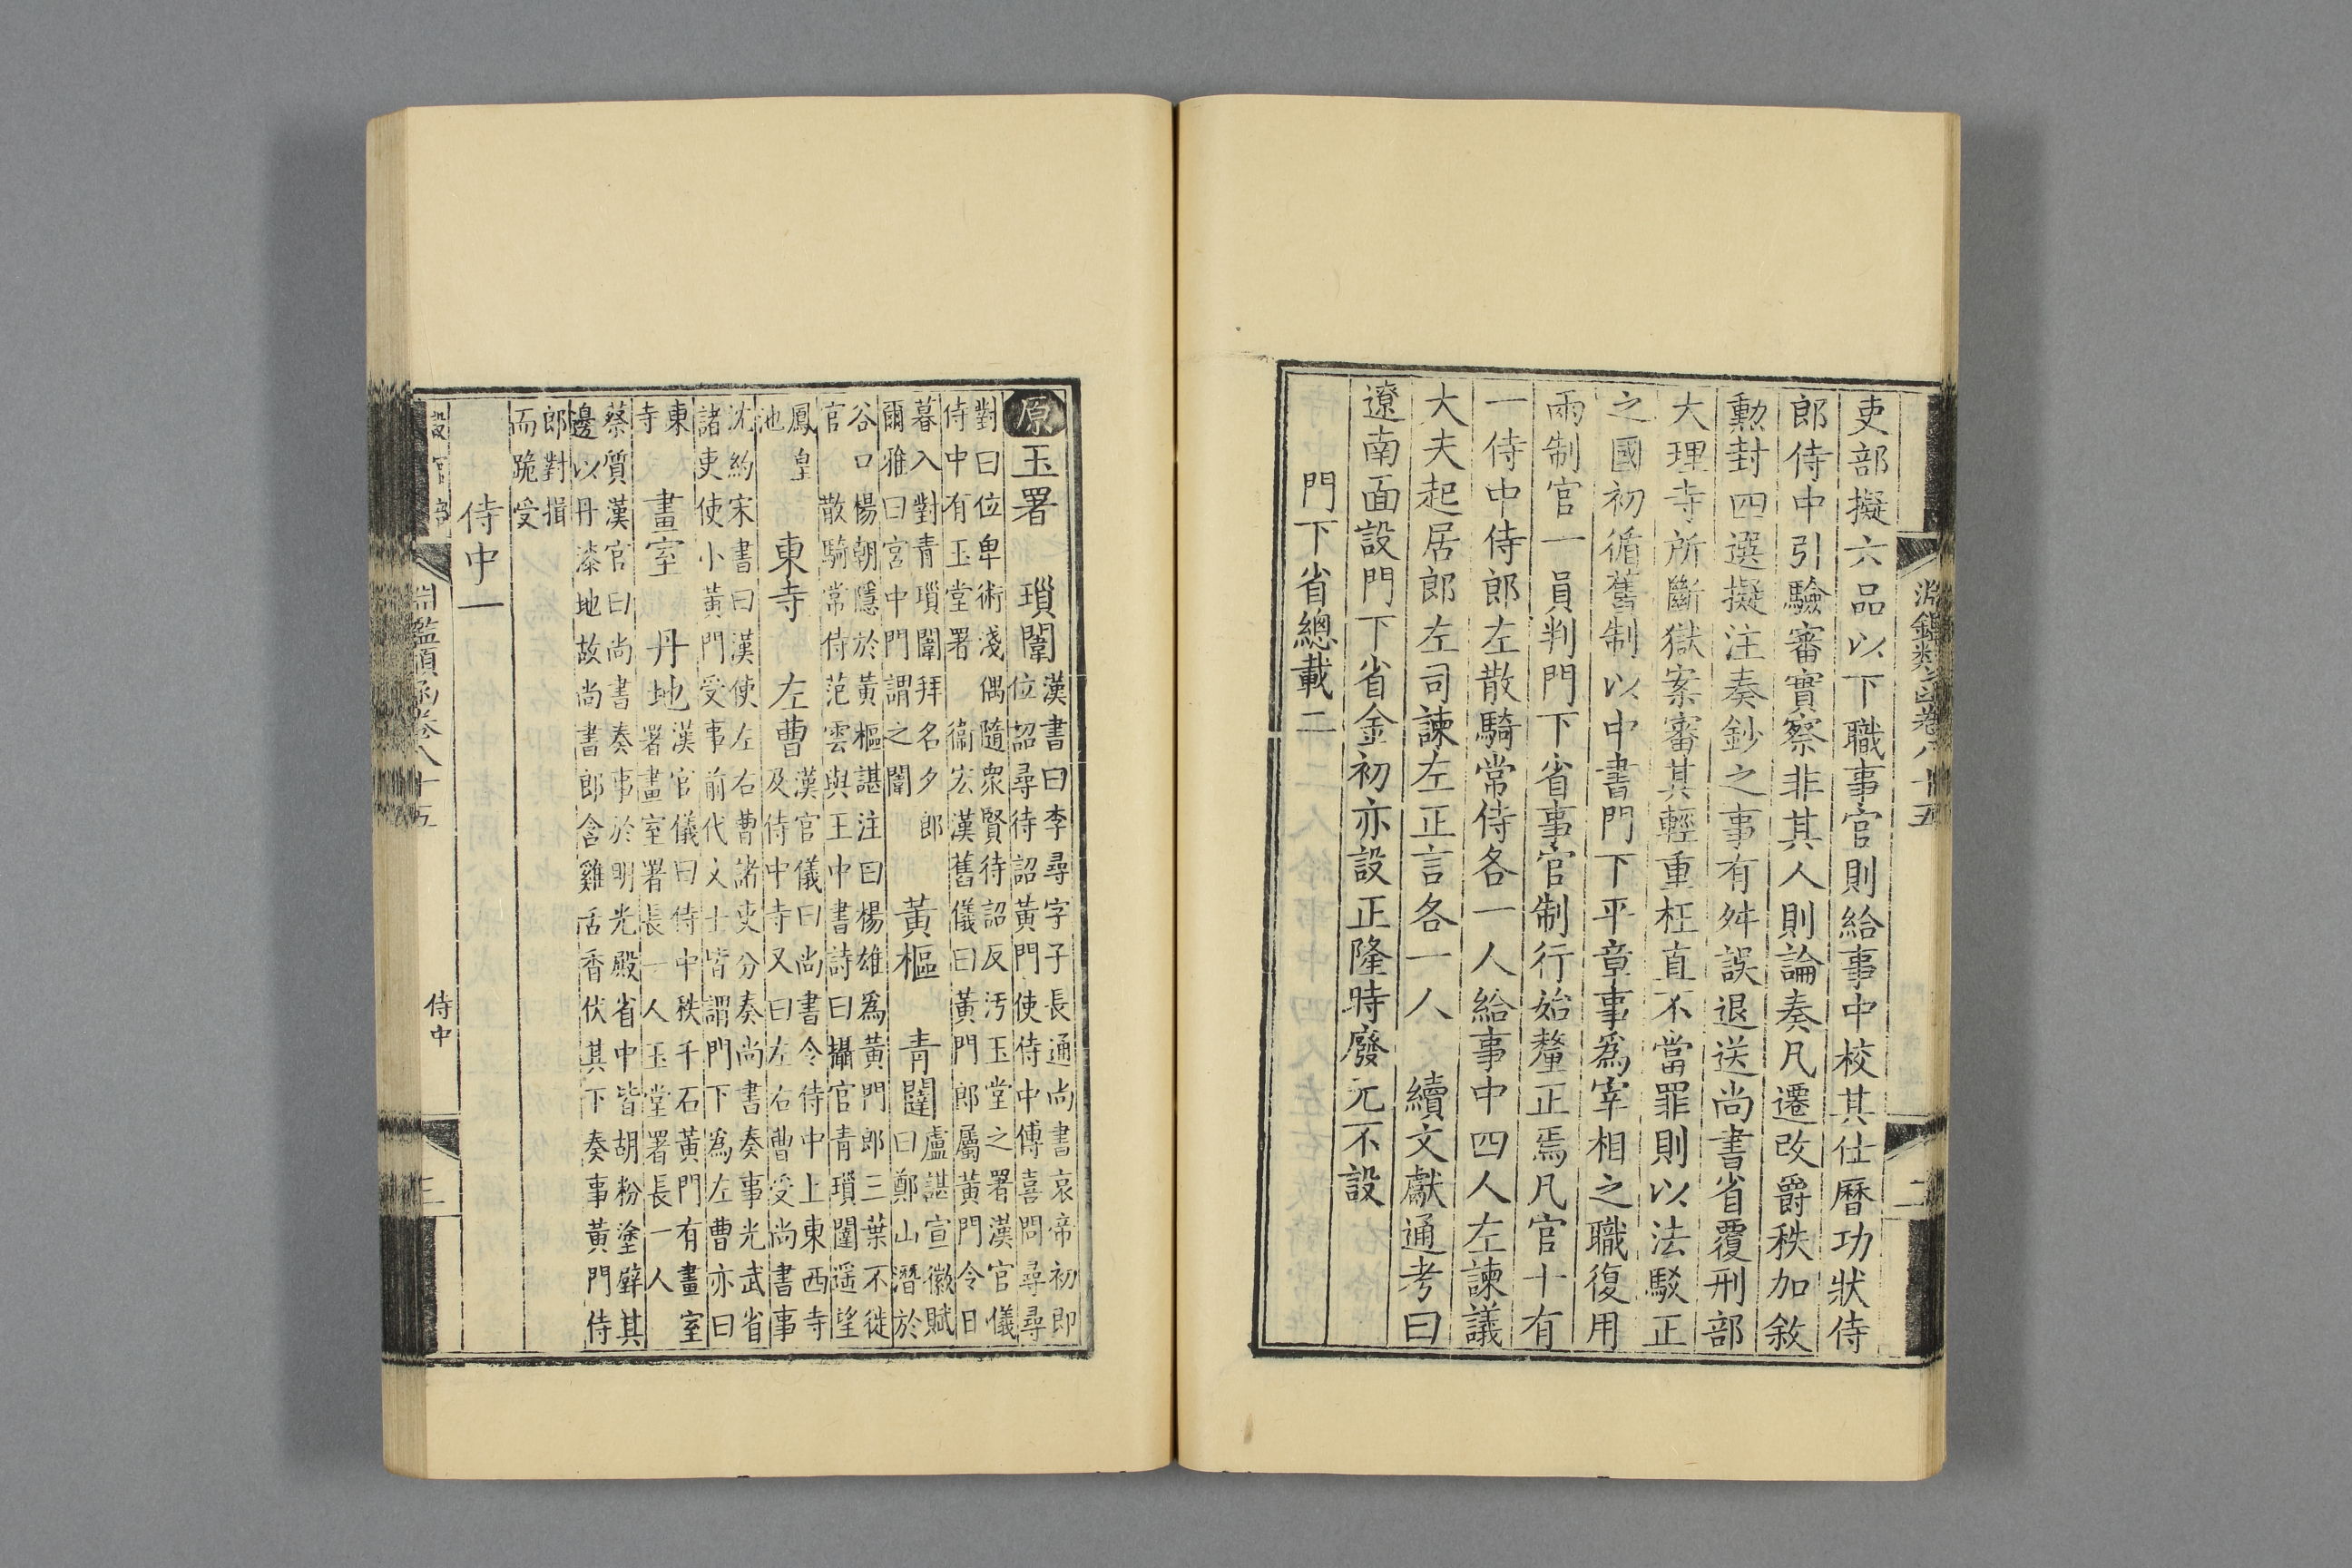 淵鑑類函卷八十五
二
吏部擬六品以下職事官則給事中校其仕曆功狀侍
郎侍中引驗審實察非其人則論奏凡遷改爵秩加敘
勳封四選擬注奏鈔之事有舛誤退送尚書省覆刑部
大理寺所斷獄案審其輕重枉直不當罪則以法駁正
之國初循舊制以中書門下平章事爲宰相之職復用
兩制官一員判門下省事官制行始釐正焉凡官十有
一侍中侍郎左散騎常侍各一人給事中四人左諫議
大夫起居郎左司諫左正言各一人 續文獻通考曰
遼南面設門下省金初亦設正隆時廢元不設
門下省總載二
原玉署 瑣闈漢書曰李尋字子長通尚書哀帝初即
位詔尋待詔黃門使侍中傅喜問尋尋
對曰位卑術淺偶隨衆賢待詔反汚玉堂之署漢官儀
侍中有玉堂署 衞宏漢舊儀曰黃門郎屬黃門令日
暮入對青瑣闈拜名夕郎 黃樞 青闥盧諶宣徽賦
爾雅曰宮中門謂之闈 曰鄭山潛於
谷口楊朝隱於黃樞諶注曰楊雄爲黃門郎三葉不徙
官 散騎常侍范雲與王中書詩曰攝官青瑣闈遥望
鳳皇 東寺 左曹漢官儀曰尚書令侍中上東西寺
池 及侍中寺又曰左右曹受尚書事
沈約宋書曰漢使左右曹諸吏分奏尚書奏事光武省
諸吏使小黃門受事前代文士皆謂門下爲左曹亦曰
東 畫室 丹地漢官儀曰侍中秩千石黃門有畫室
寺 署畫室署長一人玉堂署長一人
蔡質漢官曰尚書奏事於明光殿省中皆胡粉塗壁其
邊以丹漆地故尚書郎含雞舌香伏其下奏事黃門侍
郎對揖
而跪受
侍中一
設官部
淵鑑類函卷八十五
侍中
三